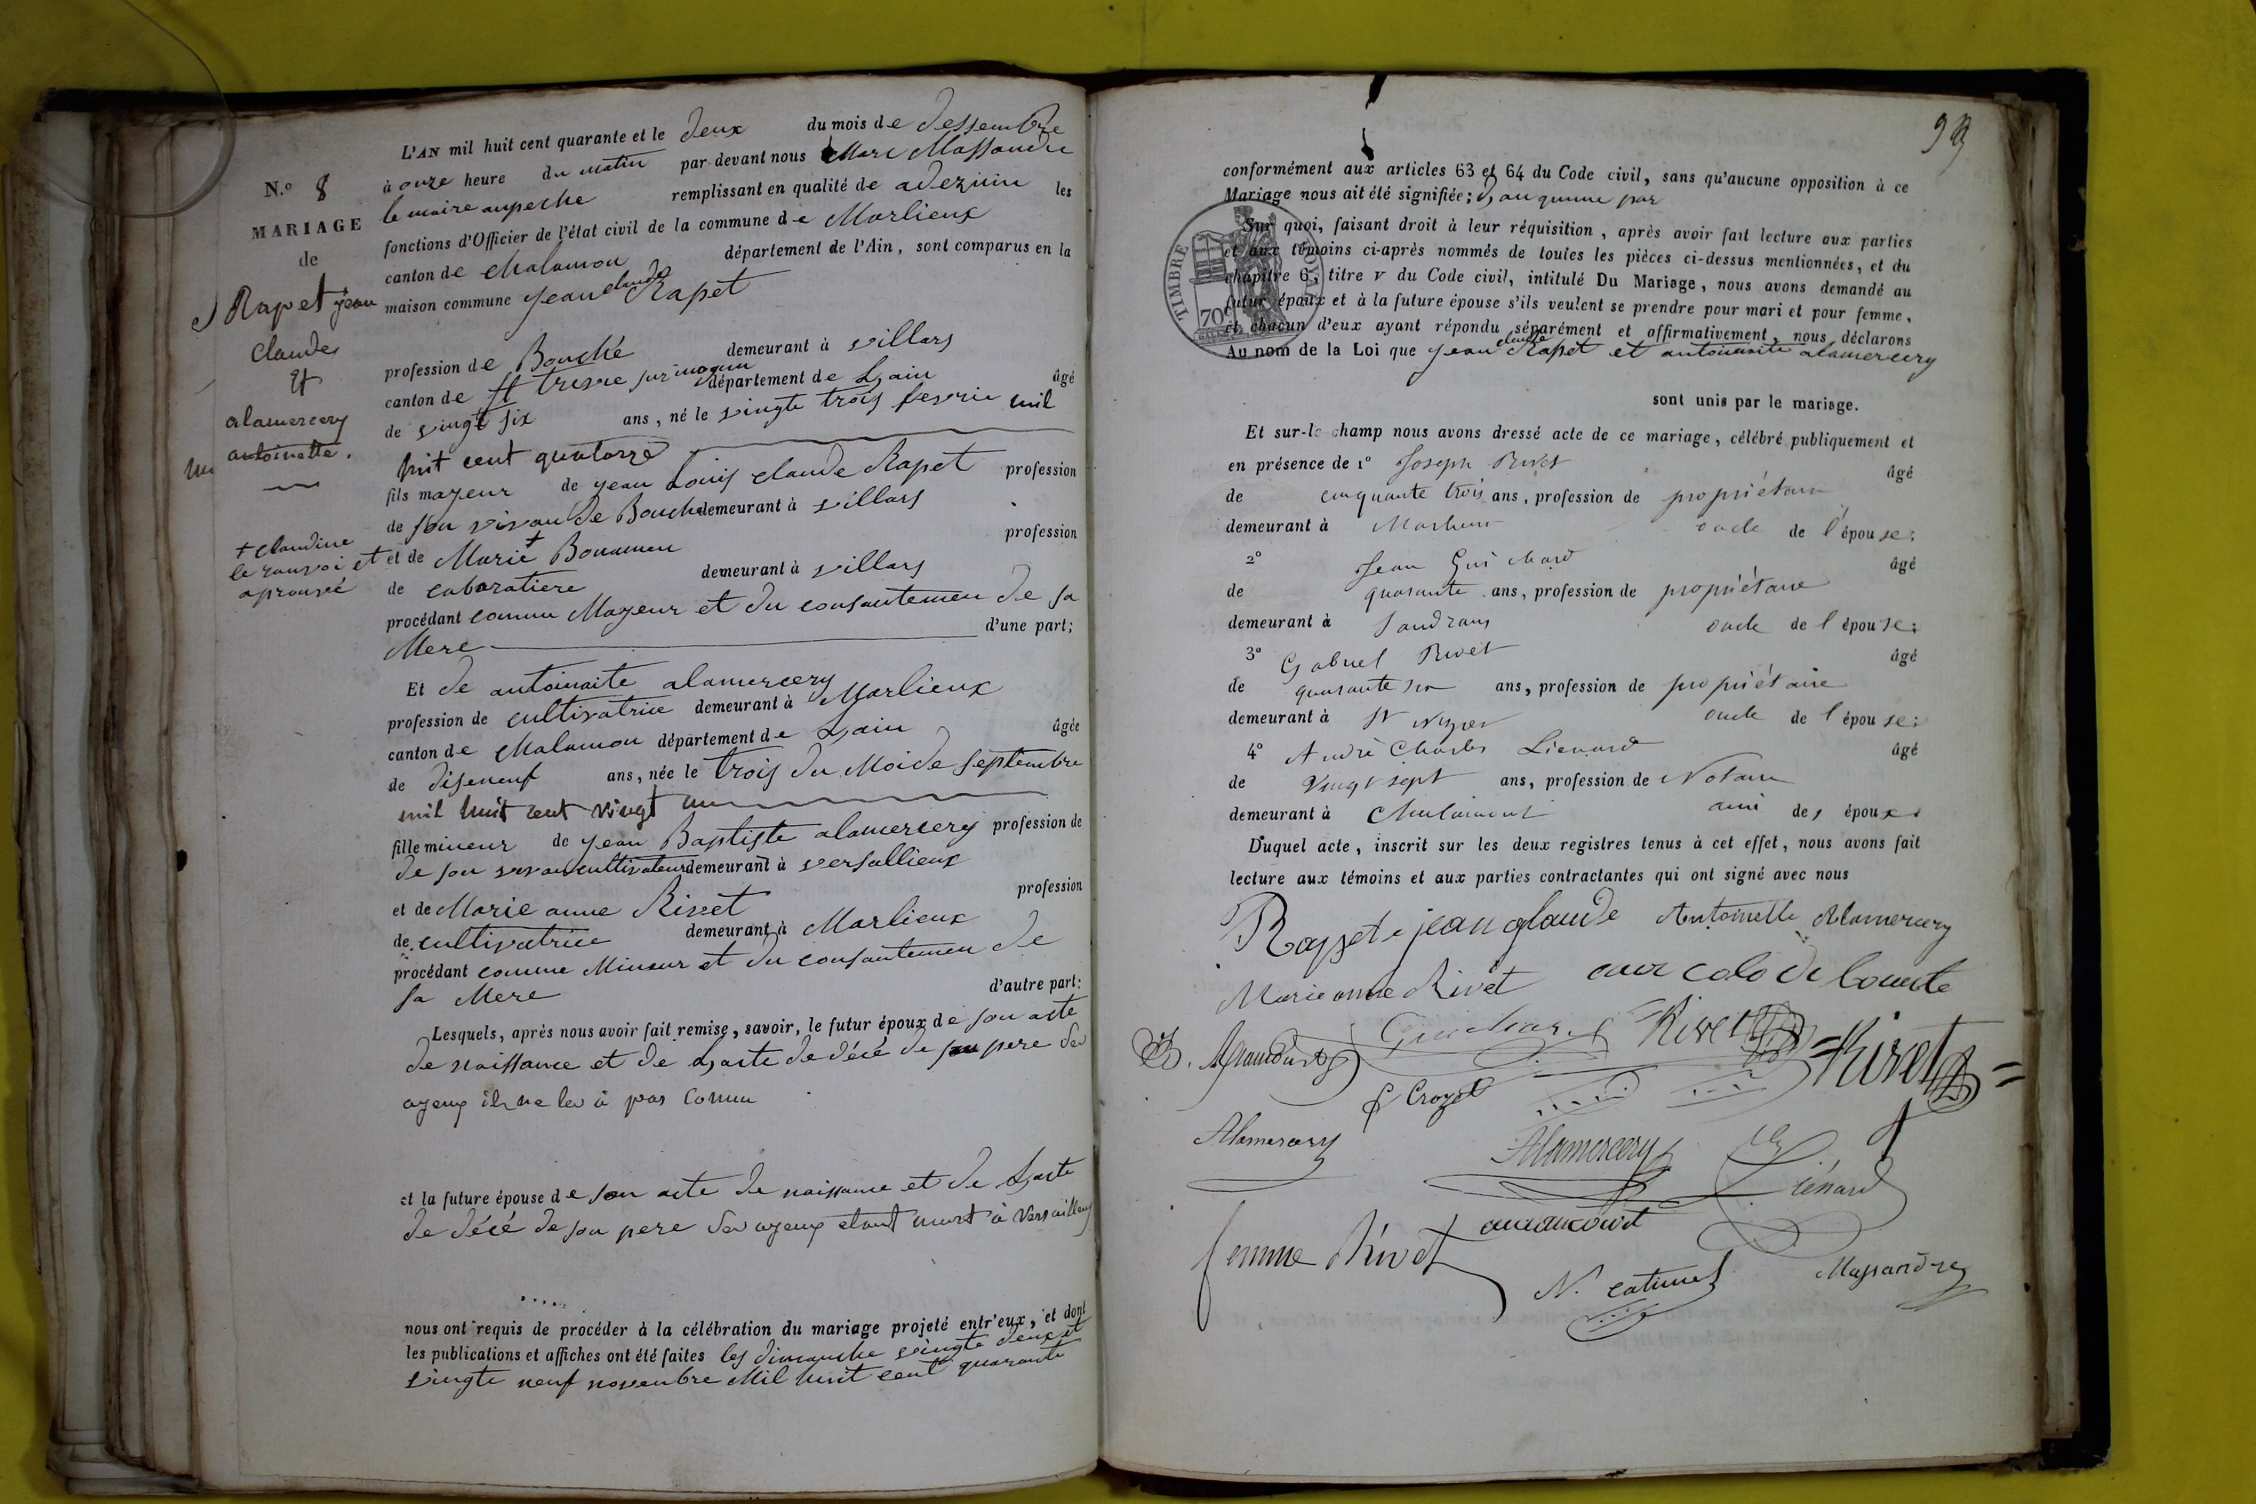 L'AN mil huit cent quarante et le deux du mois de dessembre
à onze heure du matin par-devant nous Marc Massandre
le maire anpeche remplissant en qualité de les
fonctions d'Officier de l'état civil de la commune de Marlieux
canton de Chalamon département de l'Ain, sont comparus en la
maison commune jean claude Rapet
profession de Bouché demeurant à villars
canton de st département de Lain âgé
de vingt six ans, né le vingte trois fevrie mil
huit cent quatorze
fils mayeur de jean Louis claude Rapet profession
de son vivan de Bouche demeurant à villars
et de Marie + Bonamen profession
de cabaratiere demeurant à villars
procédant comme Mayeur et du consantemen de sa
Mere d'une part;
Et de antoinaite alamercery
profession de cultivatrice demeurant à Marlieux
canton de Chalamon département de Lain âgée
de diseneuf ans, née le trois du Moi de septembre
mil huit cent vingt un
fille mineur de jean Baptiste alamercery profession de
de son vivan cultivateur demeurant à versallieux
et de Marie anne Rivet profession
de cultivatrice demeurant à Marlieux
procédant comme Mineur et du consantemen de
sa Mere d'autre part:
Lesquels, après nous avoir fait remise, savoir, le futur époux de son acte
de naissance et de Lacte de décé de son pere
ayeux il ne les à pas connu
et la future épouse de son acte de naissance et de Lacte
de décé de son pere ayeux etant mort à Versailleux
nous ont requis de procéder à la célébration du mariage projeté entr'eux, et dont
les publications et affiches ont été faites les dimanche vingte deux et
vingte neuf novembre Mil huit cent quarante
N.o 8
MARIAGE
de
Rapet jean
Claude
et
alamercery
antoinette.
+ claudine
le ranvoi et
aprouvé
99
conformément aux articles 63 et 64 du Code civil, sans qu'aucune opposition à ce
Mariage nous ait été signifiée;
Sur quoi, faisant droit à leur réquisition, après avoir fait lecture aux parties
et aux témoins ci-après nommés de toutes les pièces ci-dessus mentionnées, et du
chapitre 6, titre v du Code civil, intitulé Du Mariage, nous avons demandé au
futur époux et à la future épouse s'ils veulent se prendre pour mari et pour femme,
et chacun d'eux ayant répondu séparément et affirmativement, nous déclarons
Au nom de la Loi que jean claude Rapet et antoinaite alamercery
sont unis par le mariage.
TIMBRE
70c
Et sur-le-champ nous avons dressé acte de ce mariage, célébré publiquement et
en présence de 1o Joseph Rivet âgé
de cinquante trois ans, profession de propriétaire
demeurant à Marlieux oncle de l'épouse;
2o Jean Guichard âgé
de quarante ans, profession de propriétaire
demeurant à Sandrans oncle de l'épouse;
3o Gabriel Rivet âgé
de quarante six ans, profession de propriétaire
demeurant à St Nizier oncle de l'épouse;
4o André Charles Lienard âgé
de Vingt sept ans, profession de Notaire
demeurant à Chalamont ami des époux.
Duquel acte, inscrit sur les deux registres tenus à cet effet, nous avons fait
lecture aux témoins et aux parties contractantes qui ont signé avec nous
Rappet jean glaude Antoinette Alamercery
Marie anne Rivet
Guichard Rivet =Rivet=
Croyet
Alamercery Alamercery Liénard
femme Rivet
N. catimel Massandre